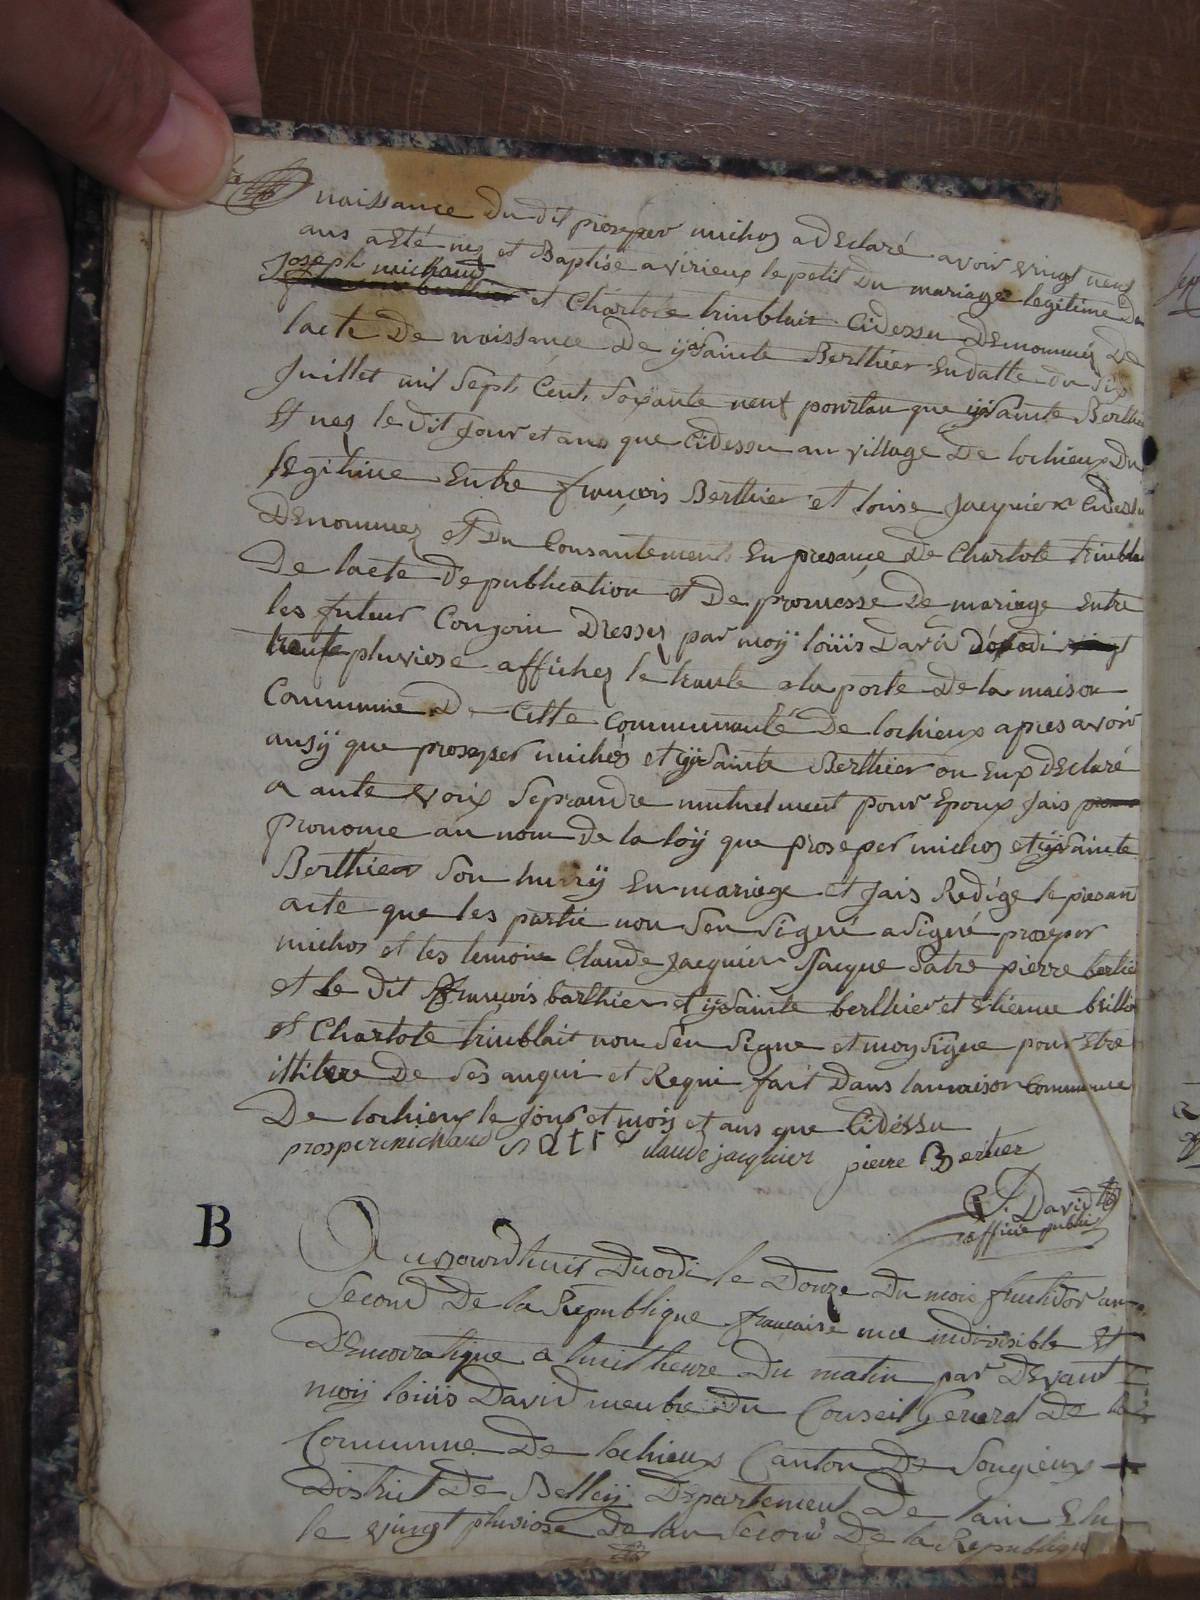 naissance du dit proseper michos adeclaré avoir vingt neuf
ans aeté nez et Baptisé avirieux le petit du mariage legitime de
joseph michaud et Charlote trinblait Cidessu denommez de
lacte de naissance de ijsainte Berthier en datte du dix
juillet mil sept Cent soixante neuf portan que ijsainte Berthier
Et nez le dit jour et ans que Cidessu au village de lochieux du
legitime Entre françois Berthier et louise jacquier Cidessu
denommez et du Consantement En presance de Charlote trinblai
De lacte de publication et de promesse de mariage Entre
les futeur Conjoin dressez par moij loüis david
trente pluviose affichez le trante a la porte de la maison
Commune de Cette Communauté de lochieux apres avoir
ausij que proseper michos et ijsainte Berthier on Eux declaré
a aute voix seprandre mutuelment pour Epoux jais
prononce au nom de la loij que proseper michos et ijsainte
Berthier son hunij En mariage et jais Redige le presan
acte que les partie non sen signé a signé prosper
michos et les temoin Claude jacquier jacque satre pierre bertie
et le dit françois barthier et ijsainte berthier et Etienne billio
et Charlote trinblait non sen signe et moy signe pour Etre
ilitere de ses anqui et Requi fait dans la maison Commune
De lochieux le jour et mois et ans que Cidessu
prosper michaud satre claude jacquier pierre Bertier
David
officie public
B
Aujourdhuit duodi le douze du mois fructidor an
second de la Republique francaise une indivisible Et
democratique a huit heure du matin par devant
moij loüis david menbre du Conseil General de la
Commune de lochieux Canton de songieux
district de Belleij departement de lain Elu
le vingt pluviose de lan second de la Republique